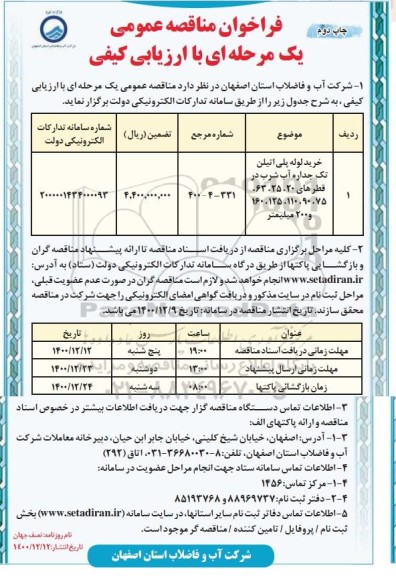 چاپ دوم
فراخوان مناقصه عمومی
یک مرحله ای با ارزیابی کیفی
۱- شرکت آب و فاضلاب استان اصفهان در نظر دارد مناقصه عمومی یک مرحله ای با ارزیابی
کیفی ، به شرح جدول زیر را از طریق سامانه تدارکات الکترونیکی دولت برگزار نماید.
ردیف موضوع شماره مرجع تضمین (ریال) شماره سامانه تدارکات الکترونیکی دولت
۱ خرید لوله پلی اتیلن تک جداره آب شرب در قطرهای ۲۰، ۲۵، ۶۳، ۷۵، ۹۰، ۱۱۰، ۱۲۵، ۱۶۰ و ۲۰۰ میلیمتر ۴۰۰-۴-۳۳۱ ۴,۴۰۰,۰۰۰,۰۰۰ ۲۰۰۰۰۰۱۴۳۴۰۰۰۰۹۳
۲- کلیه مراحل برگزاری مناقصه از دریافت اسناد مناقصه تا ارائه پیشنهاد مناقصه گران
و بازگشایی پاکتها از طریق درگاه سامانه تدارکات الکترونیکی دولت (ستاد) به آدرس:
www.setadiran.ir انجام خواهد شد و لازم است مناقصه گران در صورت عدم عضویت قبلی،
مراحل ثبت نام در سایت مذکور و دریافت گواهی امضای الکترونیکی را جهت شرکت در مناقصه
محقق سازند. تاریخ انتشار مناقصه در سامانه: تاریخ ۱۴۰۰/۱۲/۹ می باشد.
عنوان ساعت روز تاریخ
مهلت زمانی دریافت اسناد مناقصه ۱۹:۰۰ پنج شنبه ۱۴۰۰/۱۲/۱۲
مهلت زمانی ارسال پیشنهاد ۱۳:۰۰ دوشنبه ۱۴۰۰/۱۲/۲۳
زمان بازگشائی پاکتها ۰۸:۰۰ سه شنبه ۱۴۰۰/۱۲/۲۴
۳- اطلاعات تماس دستگاه مناقصه گزار جهت دریافت اطلاعات بیشتر در خصوص اسناد
مناقصه و ارائه پاکتهای الف:
۳-۱- آدرس: اصفهان، خیابان شیخ کلینی، خیابان جابر ابن حیان، دبیرخانه معاملات شرکت
آب و فاضلاب استان اصفهان، تلفن: ۸-۳۶۶۸۰۰۳۰-۰۳۱، اتاق (۲۹۲)
۴- اطلاعات تماس سامانه ستاد جهت انجام مراحل عضویت در سامانه:
۴-۱- مرکز تماس: ۱۴۵۶
۴-۲- دفتر ثبت نام: ۸۸۹۶۹۷۳۷ و ۸۵۱۹۳۷۶۸
۵- اطلاعات تماس دفاتر ثبت نام سایر استانها، در سایت سامانه (www.setadiran.ir) بخش
ثبت نام / پروفایل / تامین کننده / مناقصه گر موجود است.
نام روزنامه: نصف جهان
تاریخ انتشار: ۱۴۰۰/۱۲/۱۲
شرکت آب و فاضلاب استان اصفهان